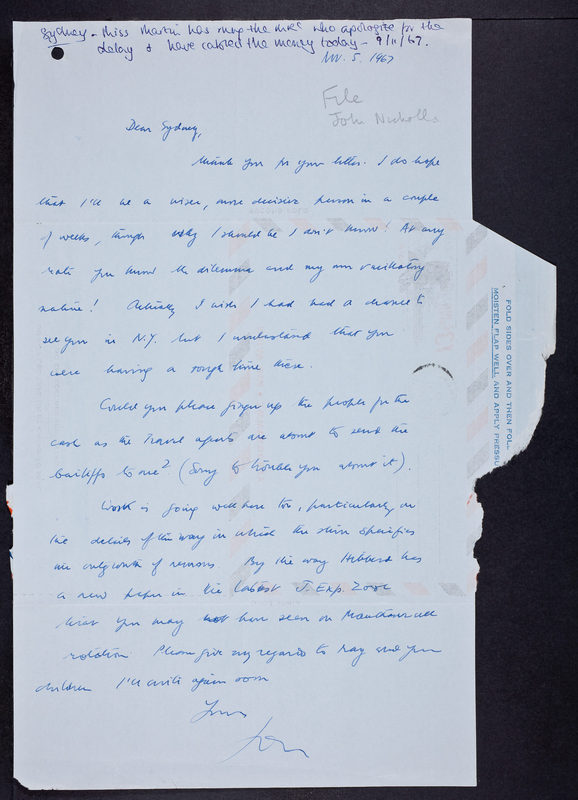 Sydney - Miss Martin has rung the MRC who apologise for the
delay & have cabled the money today - 9/11/67.
Nov. 5. 1967
File
John Nicholls
Dear Sydney,
Thank you for your letter. I do hope
that I'll be a wiser, more decisive person in a couple
of weeks, though why I should be I don't know! At any
rate you know the dilemma and my own vacillatory
nature! Actually I wish I had had a chance to
see you in N.Y. but I understand that you
were having a rough time there.
Could you please ginger up the people for the
cash as the travel agents are about to send the
bailiffs to me? (Sorry to trouble you about it).
Work is going well here too, particularly on
the details of the way in which the skin specifies
the outgrowth of neurons. By the way Hibbard has
a new paper in the latest J. Exp. Zool
that you may not have seen on Mauthner cell
rotation. Please give my regards to May and your
children I'll write again soon
Yours
John
FOLD SIDES OVER AND THEN FOL
MOISTEN FLAP WELL AND APPLY PRESSU